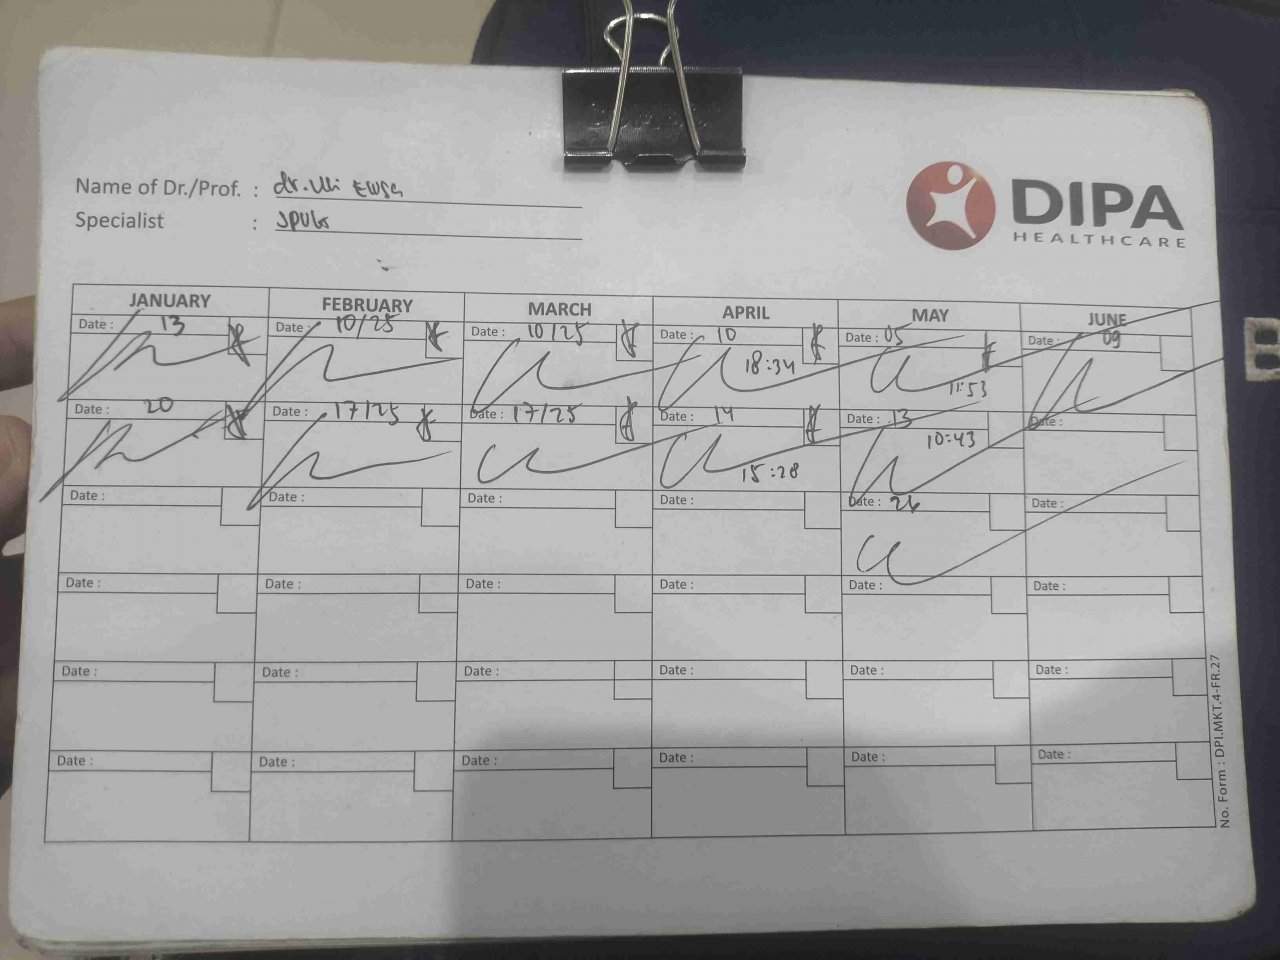 Name of Dr./Prof. : dr. Uli
Specialist :
DIPA
HEALTHCARE
JANUARY FEBRUARY MARCH APRIL MAY JUNE
Date : 13 Date : 10/25 Date : 10/25 Date : 10 Date : 05 Date : 09
18:34 11:53
Date : 20 Date : 17/25 Date : 17/25 Date : 14 Date : 13 Date :
15:28 10:43
Date : Date : Date : Date : Date : 26 Date :
Date : Date : Date : Date : Date : Date :
Date : Date : Date : Date : Date : Date :
Date : Date : Date : Date : Date : Date :
No. Form : DPI.MKT.4-FR.27